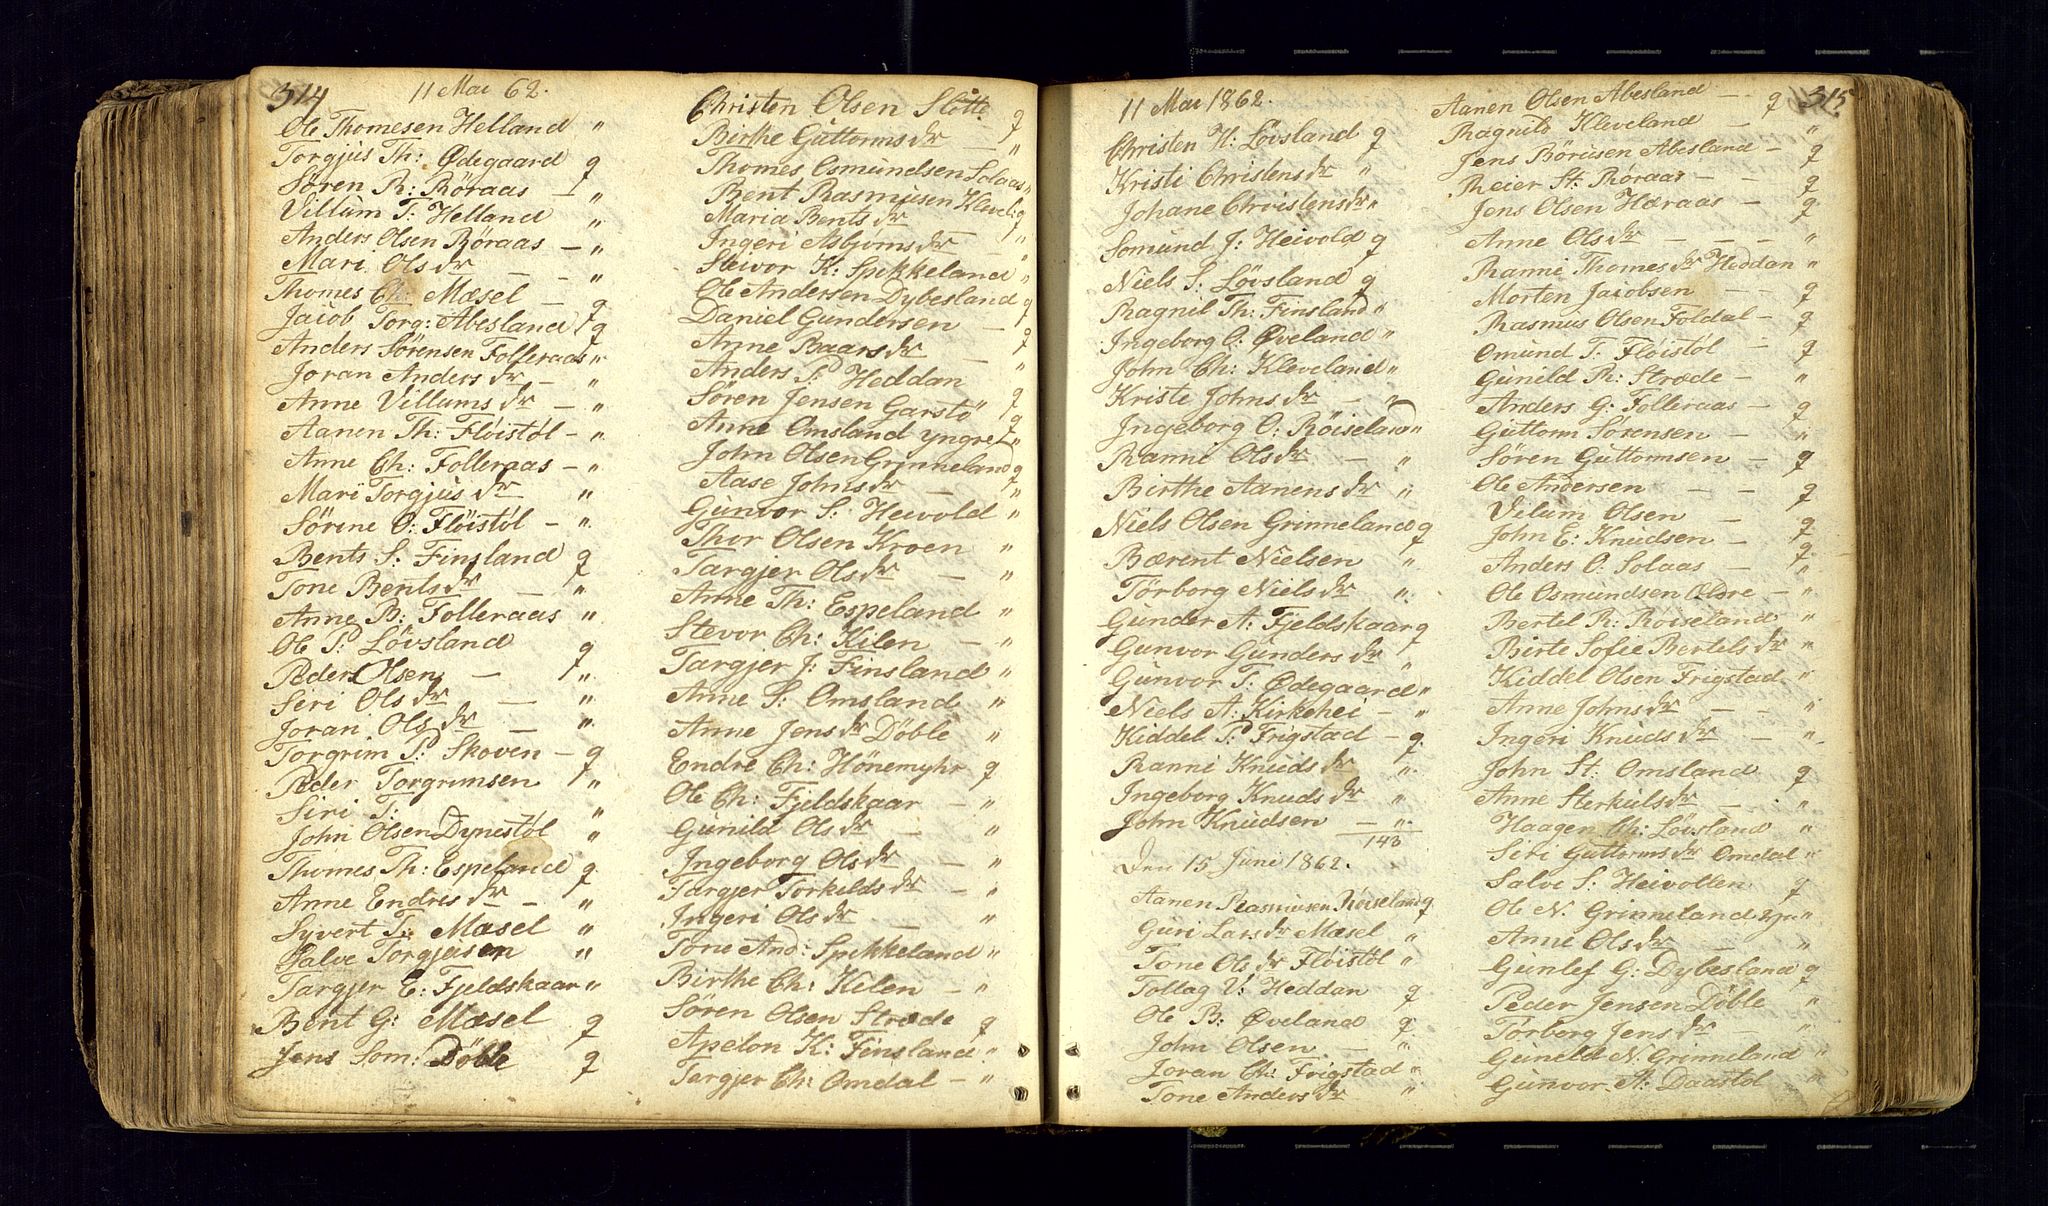 314 11 Mai 62.
Ole Thomesen Helland "
Torgjus Th: Ødegaard g
Søren R: Røraas — "
Villum T: Helland "
Anders Olsen Røraas — "
Mari Olsdr — — "
Thomes Ch: Mæsel — g
Jacob Torg: Abesland g
Anders Sørensen Folleraas "
Joran Andersdr — "
Anne Villumsdr — "
Aanen Th: Fløistøl — "
Anne Ch: Folleraas — "
Mari Torgjusdr "
Sørine O: Fløistøl — "
Bents S: Finsland g
Tone Bentsdr — "
Anne B: Folleraas "
Ole P: Løvsland g
Peders Olsen — "
Siri Olsdr — "
Joran Olsdr — "
Torgrim P: Skoven — g
Peder Torgrimsen "
Siri T: "
John Olsen Dynestøl "
Thomes Th: Espeland g
Anne Endresdr — "
Syvert T: Mæsel "
Salve Torgjusen "
Targjer E: Fjeldskaar "
Bent G: Mæsel g
Jens Som: Døble g
Christen Olsen Slotte g
Birthe Guttormsdr — "
Thomes Osmundsen Solaas "
Bent Rasmusen Klevel: g
Maria Bentsdr — "
Ingeri Asbjornsdr — "
Steivor K: Spikkeland "
Ole Andersen Dybesland g
Daniel Gundersen — g
Anne Baarsdr — "
Anders P: Heddan g
Søren Jensen Garstø g
Anne Omsland yngre "
John Olsen Grinneland g
Aase Johnsdr — "
Gunvor S: Heivold "
Thor Olsen Kroen "
Targjer Olsdr — "
Anne Th: Espeland "
Stevor Ch: Kilen — "
Targjer J: Finsland "
Anne S: Omsland "
Anne Jensdr Døble "
Endre Ch: Hønemyhr g
Ole Ch: Fjeldskaar — "
Gunild Olsdr — "
Ingeborg Olsdr — "
Targjer Torkildsdr — "
Ingeri Olsdr — "
Tone And: Spikkeland "
Birthe Ch: Kilen — "
Søren Olsen Stræde g
Apelon K: Finsland "
Targjer Ch: Omdal — "
11 Mai 1862.
Christen H: Løvsland g
Kristi Christensdr "
Johane Christensdr "
Somund J: Heivold g
Niels S: Løvsland g
Ragnil Th: Finsland "
Ingeborg O: Øveland "
John Ch: Kleveland "
Kristi Johnsdr — "
Ingeborg O: Røiseland "
Ranni Olsdr — "
Birthe Aanensdr "
Niels Olsen Grinneland g
Bærent Nielsen "
Tørborg Nielsdr "
Gunder A: Fjeldskaar g
Gunvor Gundersdr "
Gunvor T: Ødegaard "
Niels A: Kirkehei — "
Kiddel P: Frigstad — g
Ranni Knudsdr "
Ingeborg Knudsdr "
John Knudsen — "
143
Den 15 Juni 1862.
Aanen Rasmusen Røiseland g
Guri Larsdr Mæsel "
Tone Olsdr Fløistøl "
Tollag V: Heddan g
Ole B: Øveland g
John Olsen — "
Joran Ch: Frigstad "
Tone Andersdr "
Aanen Olsen Abesland — g 315
Ragnild Kleveland — "
Jens Børusen Abesland — g
Reier St: Røraas — — g
Jens Olsen Hæraas — g
Anne Olsdr — — — "
Ranni Thomesdr Heddan "
Morten Jacobsen — — g
Rasmus Olsen Foldal — g
Omund T: Fløistøl — g
Gunild Th: Stræde — "
Anders G: Folleraas — g
Guttorm Sørensen — "
Søren Guttormsen — g
Ole Andersen — — g
Vilum Olsen — g
John E: Knudsen — g
Anders O: Solaas — "
Ole Osmundsen Odre — "
Bertel R: Røiseland "
Birte Sofie Bertelsdr "
Kiddel Olsen Frigstad "
Anne Johnsdr — — "
Ingeri Knudsdr — "
John St: Omsland g
Anne Sterkulsdr — "
Haagen Ch: Løvsland "
Siri Guttormsdr Omdal "
Salve S: Heivollen g
Ole N. Grinneland yn: "
Anne Olsdr — "
Gunlef G: Dybesland g
Peder Jensen Døble "
Tørborg Jensdr — "
Gunild N. Grinneland "
Gunvor A: Daastøl "